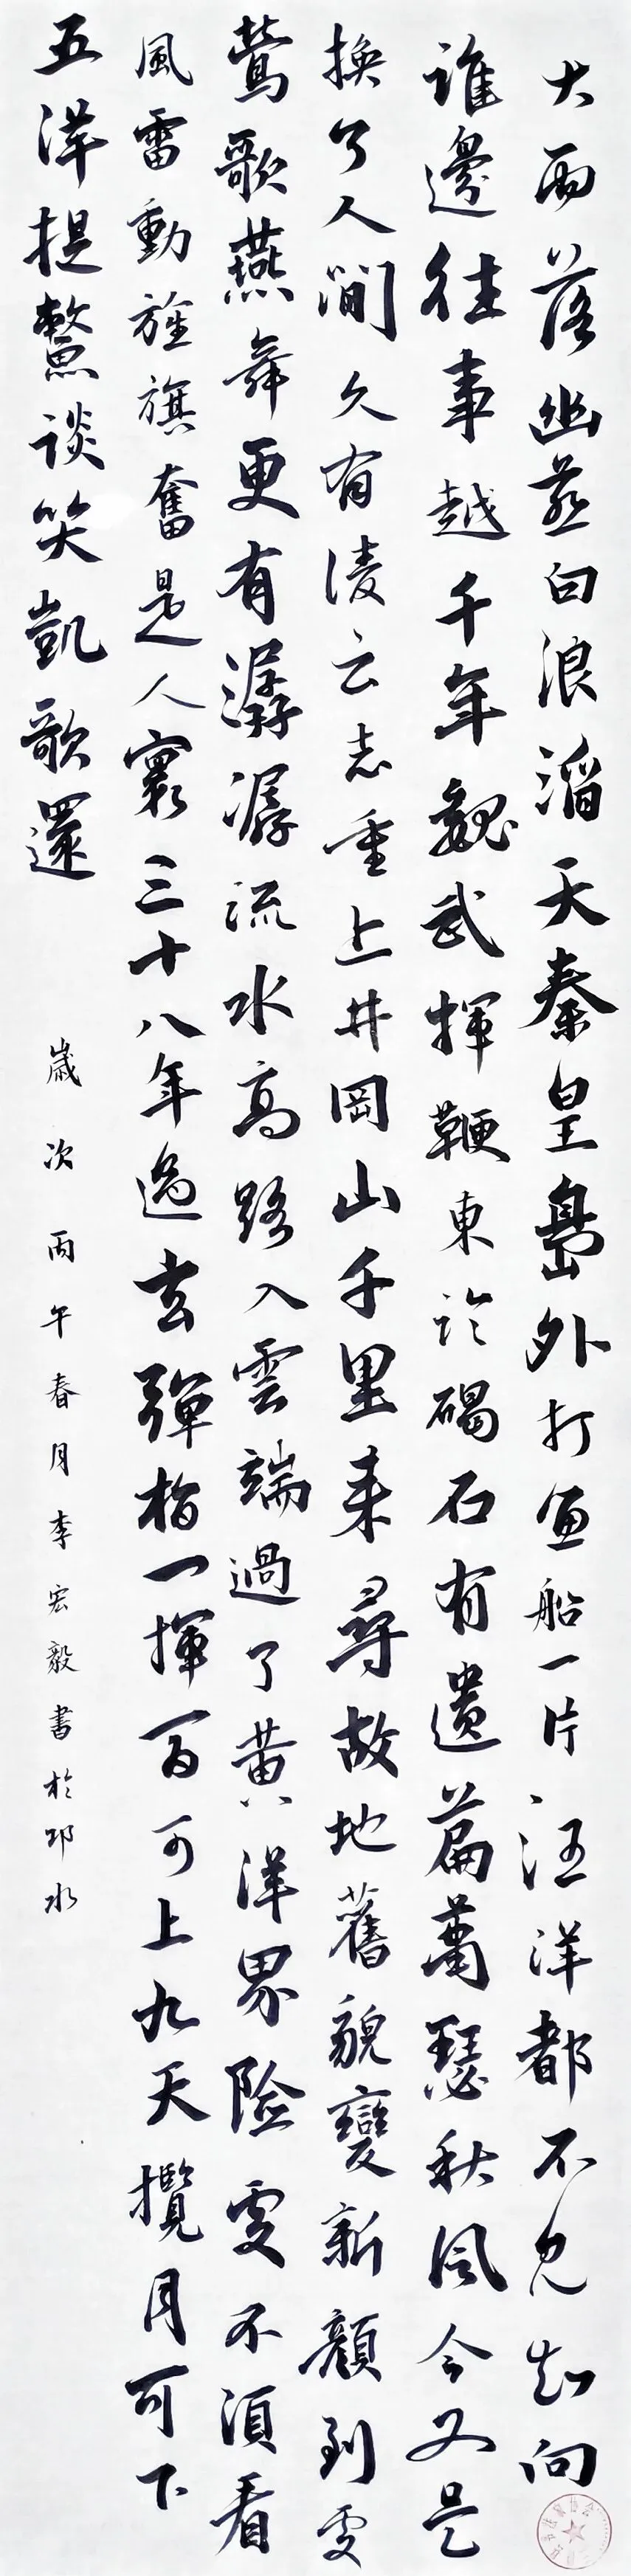 大雨落幽燕白浪滔天秦皇島外打魚船一片汪洋都不見知向
誰邊往事越千年魏武揮鞭東臨碣石有遺篇蕭瑟秋風今又是
換了人間久有凌云志重上井岡山千里来尋故地舊貌變新顏到處
鶯歌燕舞更有潺潺流水高路入雲端過了黃洋界險處不須看
風雷動旌旗奮是人寰三十八年過去彈指一揮間可上九天攬月可下
五洋提鱉談笑凱歌還
歲次丙午春月李宏毅書於邛水